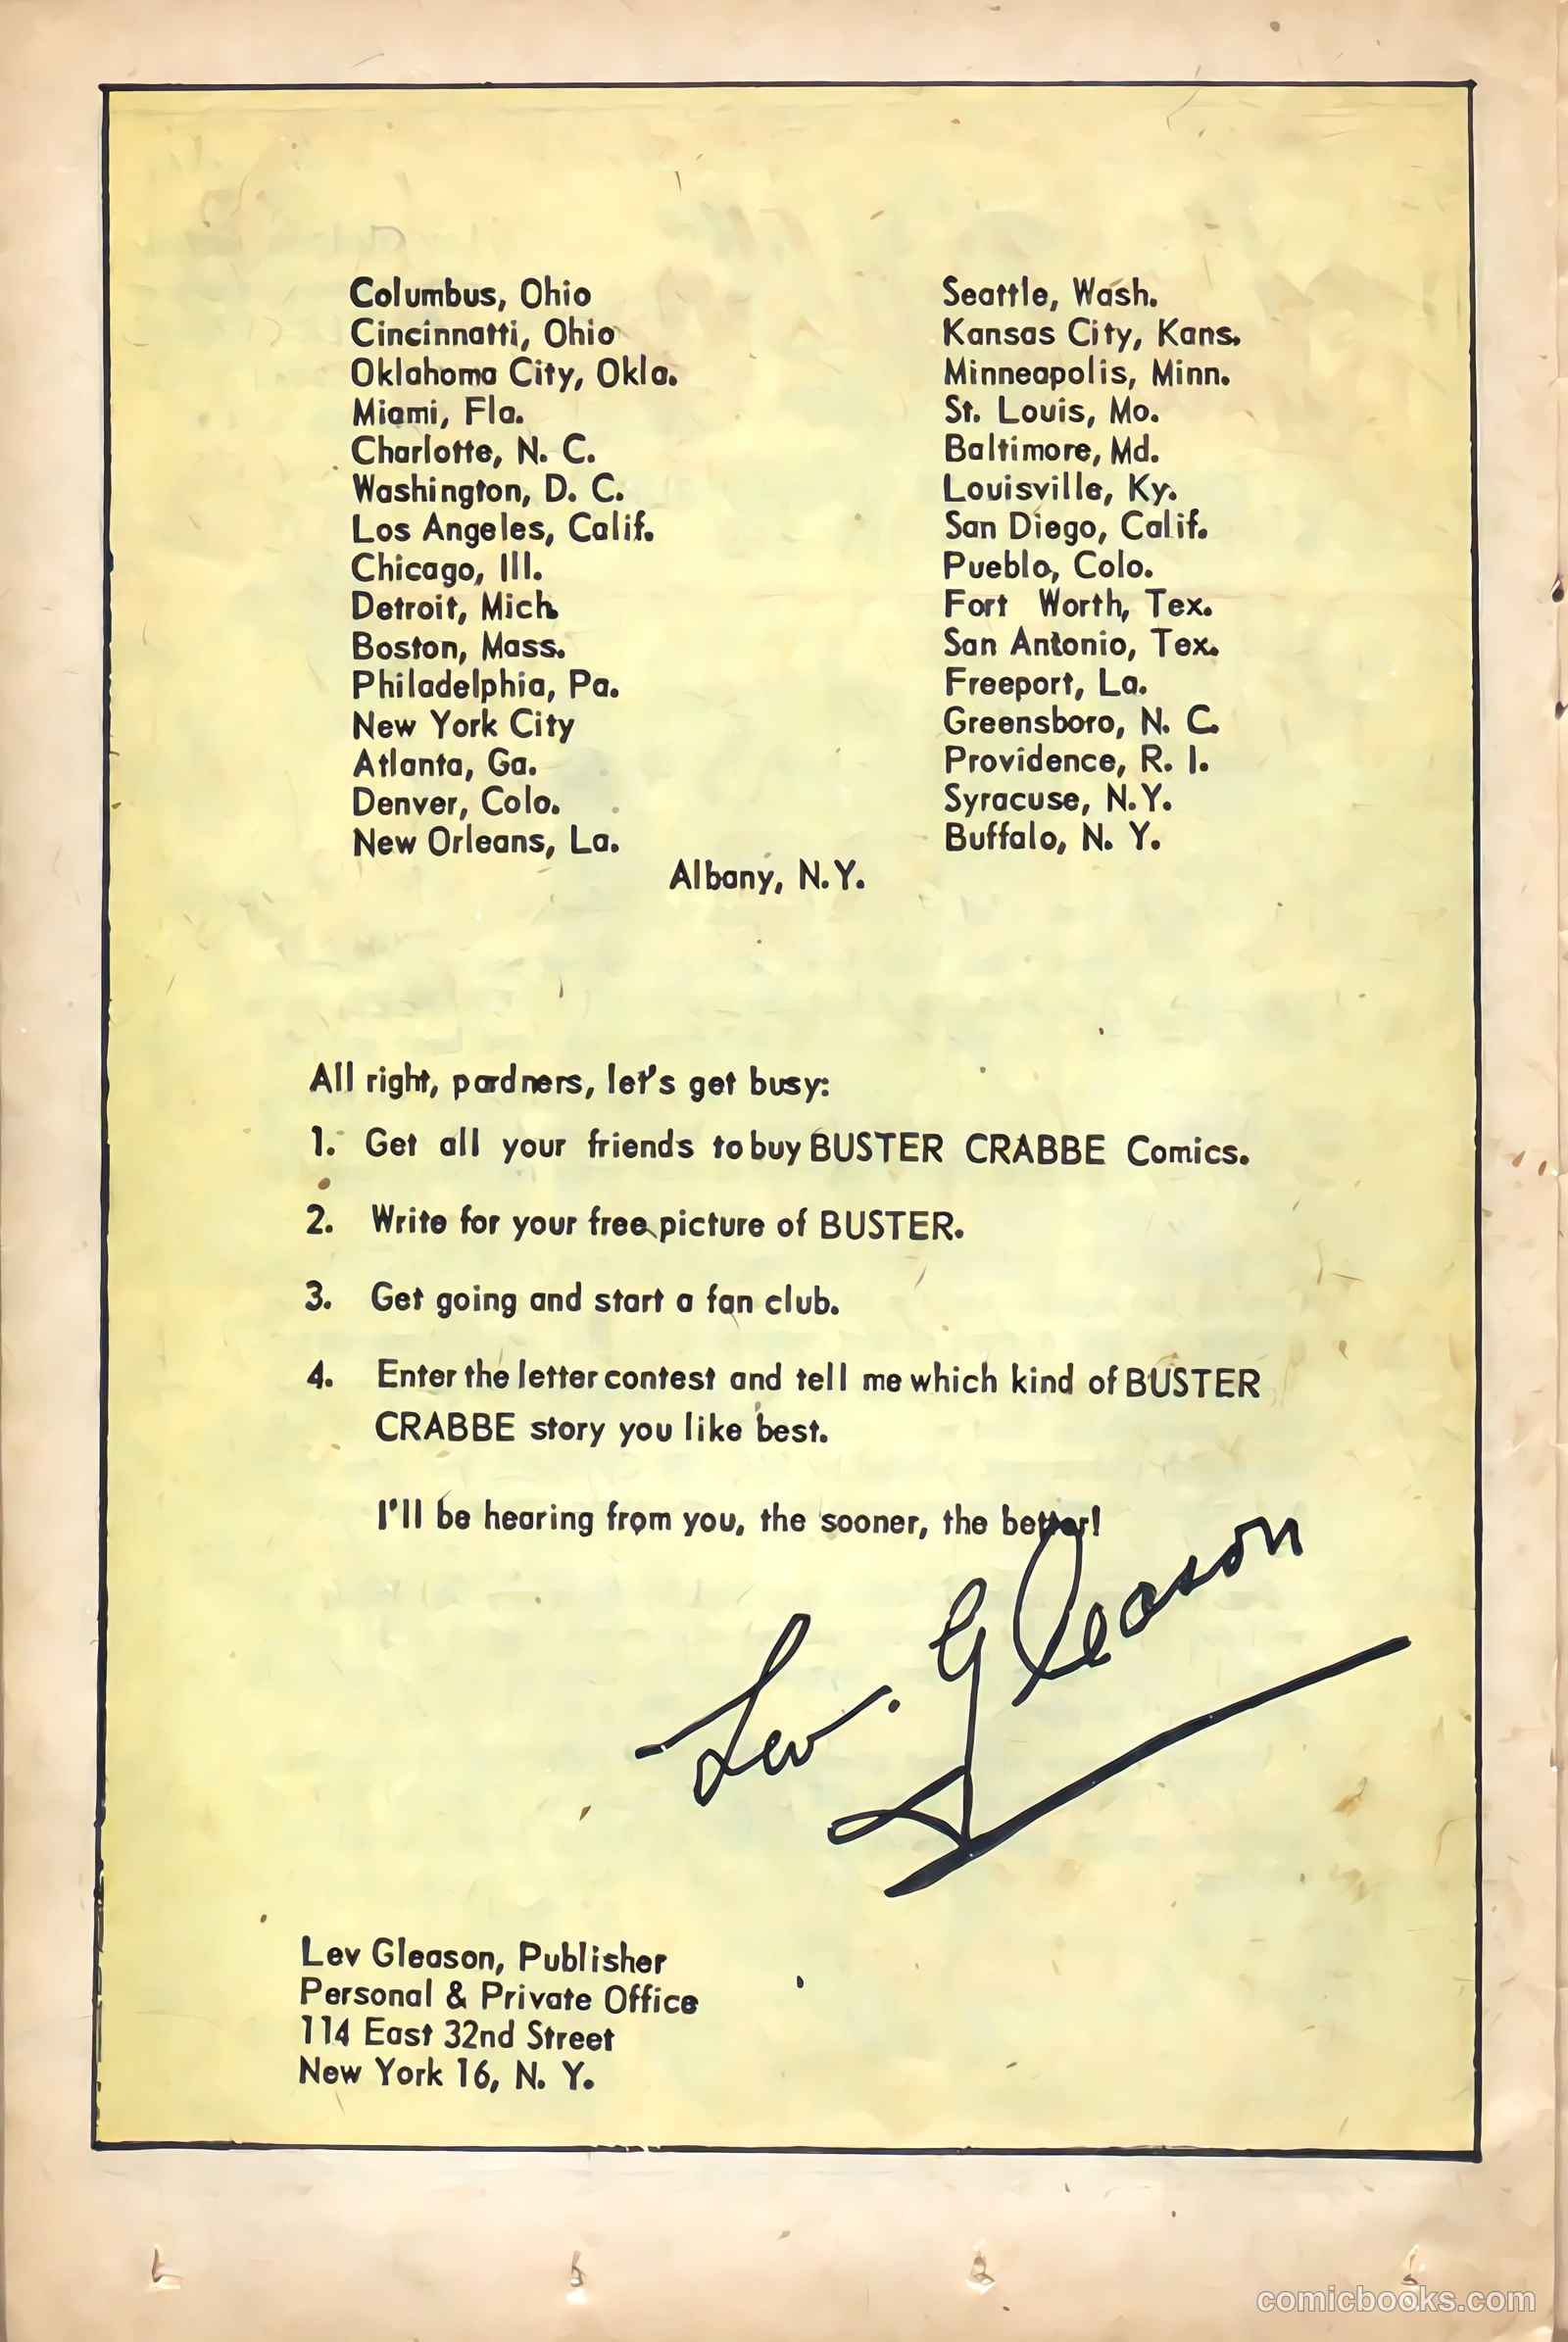 Columbus, Ohio
Cincinnatti, Ohio
Oklahoma City, Okla.
Miami, Fla.
Charlotte, N. C.
Washington, D. C.
Los Angeles, Calif.
Chicago, Ill.
Detroit, Mich.
Boston, Mass.
Philadelphia, Pa.
New York City
Atlanta, Ga.
Denver, Colo.
New Orleans, La.
Seattle, Wash.
Kansas City, Kans.
Minneapolis, Minn.
St. Louis, Mo.
Baltimore, Md.
Louisville, Ky.
San Diego, Calif.
Pueblo, Colo.
Fort Worth, Tex.
San Antonio, Tex.
Freeport, La.
Greensboro, N. C.
Providence, R. I.
Syracuse, N.Y.
Buffalo, N. Y.
Albany, N.Y.
All right, pardners, let's get busy:
1. Get all your friends to buy BUSTER CRABBE Comics.
2. Write for your free picture of BUSTER.
3. Get going and start a fan club.
4. Enter the letter contest and tell me which kind of BUSTER
CRABBE story you like best.
I'll be hearing from you, the sooner, the better!
Lev. Gleason
Lev Gleason, Publisher
Personal & Private Office
114 East 32nd Street
New York 16, N. Y.
comicbooks.com